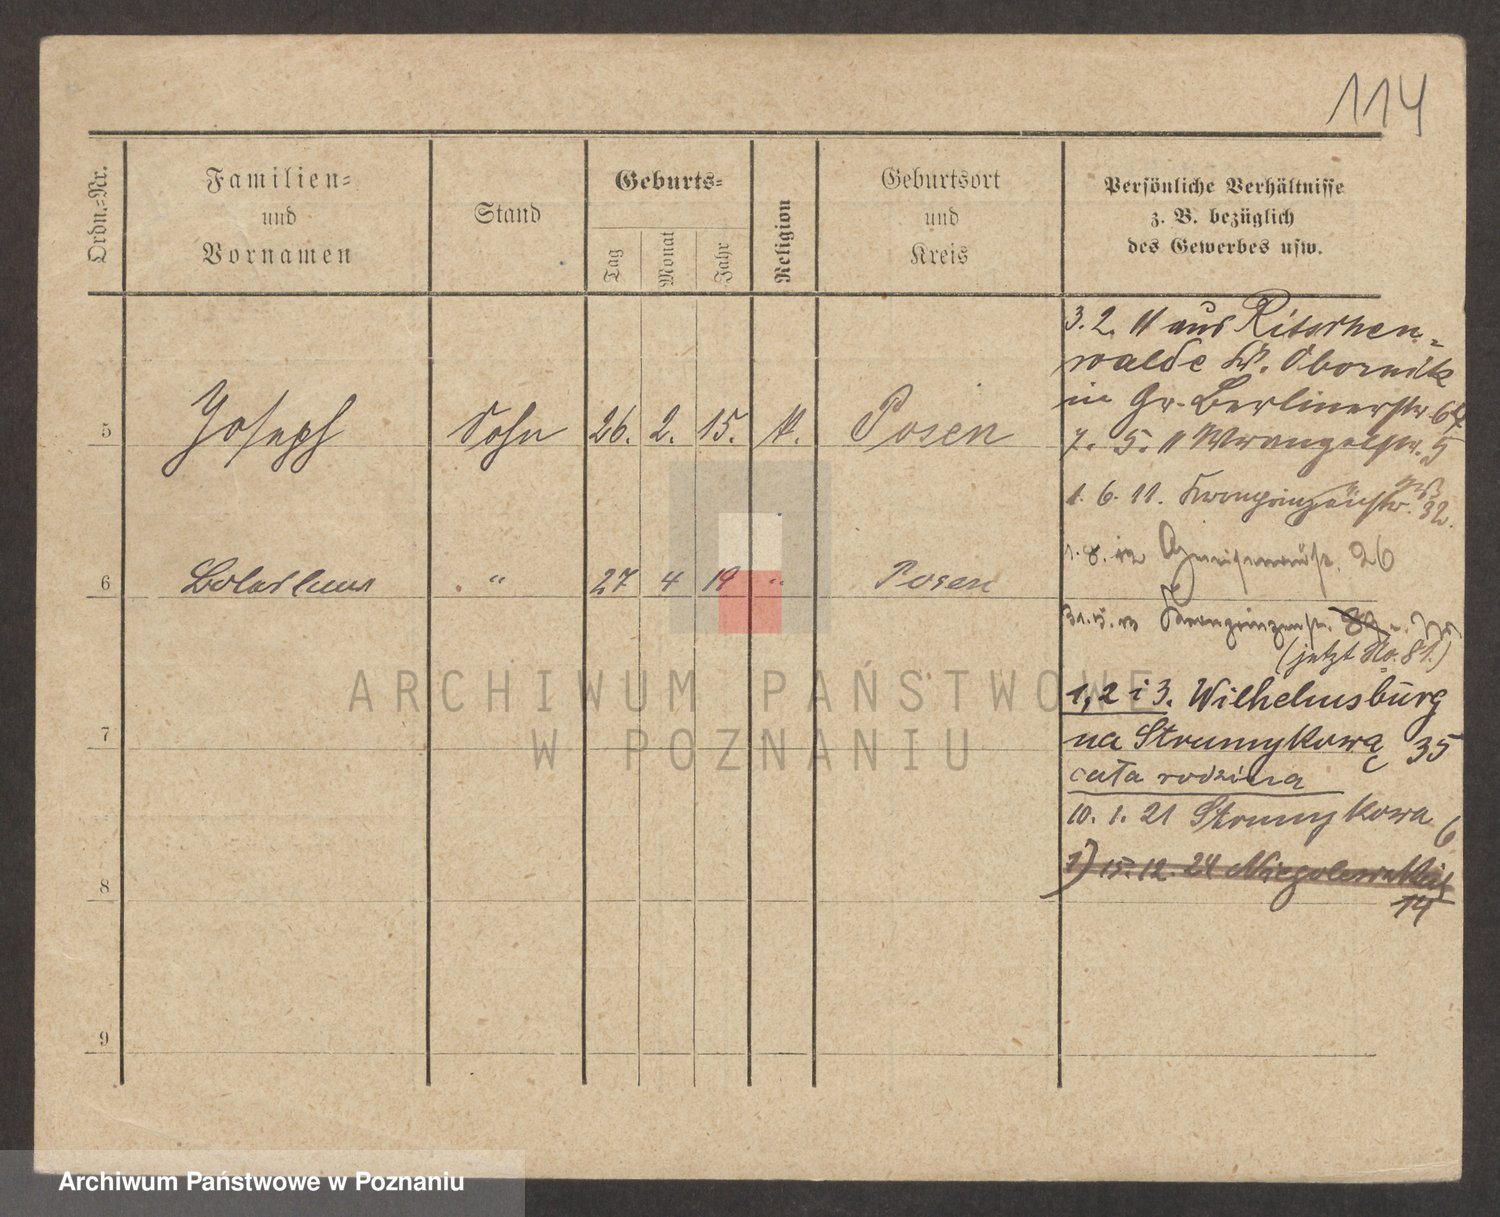 114
Ordn.=Nr.
Familien=
und
Vornamen
Stand
Geburts=
Tag
Monat
Jahr
Religion
Geburtsort
und
Kreis
Persönliche Verhältnisse
z. B. bezüglich
des Gewerbes usw.
3. 2. 11 aus Ritschen-
walde Kr. Obornik
in Gr. Berlinerstr. 64
5 Joseph Sohn 26. 2. 15. k. Posen
7. 5. 11 Wrangelstr. 5
1. 6. 11. Kronprinzenstr. 32.
1. 8. 12 Gneisenaustr. 26
6 Boleslaus " 27 4 19 " Posen
Kronprinzenstr.
(jetzt No. 81.)
1, 2 i 3. Wilhelmsburg
7
na Strumykową 35
cała rodzina
10. 1. 21 Strumykowa 6
8
1) 15. 12. 24 Niegolewskich
14
9
ARCHIWUM PAŃSTWOWE
W POZNANIU
Archiwum Państwowe w Poznaniu